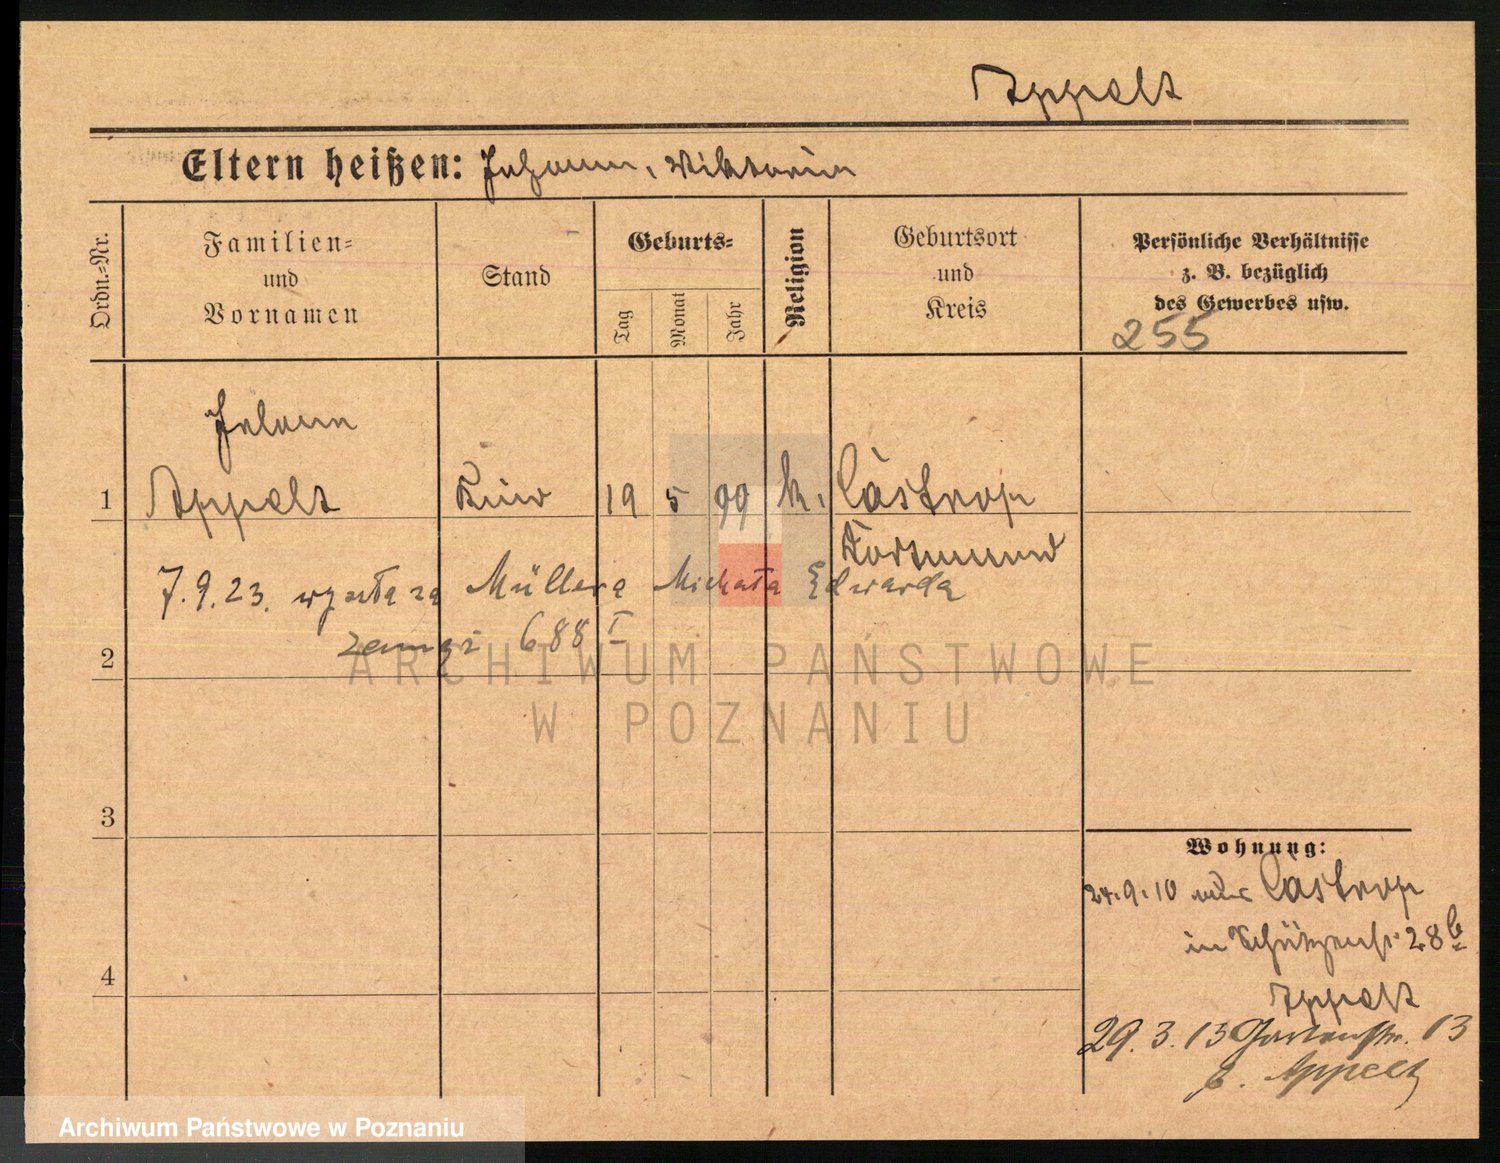 Appelt
Eltern heißen: Johann, Viktoria
Ordn.=Nr.
Familien=
und
Vornamen
Stand
Geburts=
Tag
Monat
Jahr
Religion
Geburtsort
und
Kreis
Persönliche Verhältnisse
z. B. bezüglich
des Gewerbes usw.
255
1 Appelt 19 5 99 k. Castrop
Dortmund
7.9.23. wyszła za Müllera Michała Edwarda
zamąż 688 I
2
ARCHIWUM PAŃSTWOWE
W POZNANIU
3
Wohnung:
24.9.10 Castrop
in Schützenstr. 28b
Appelt
4
29.3.13 Gartenstr. 13
b. Appelt
Archiwum Państwowe w Poznaniu